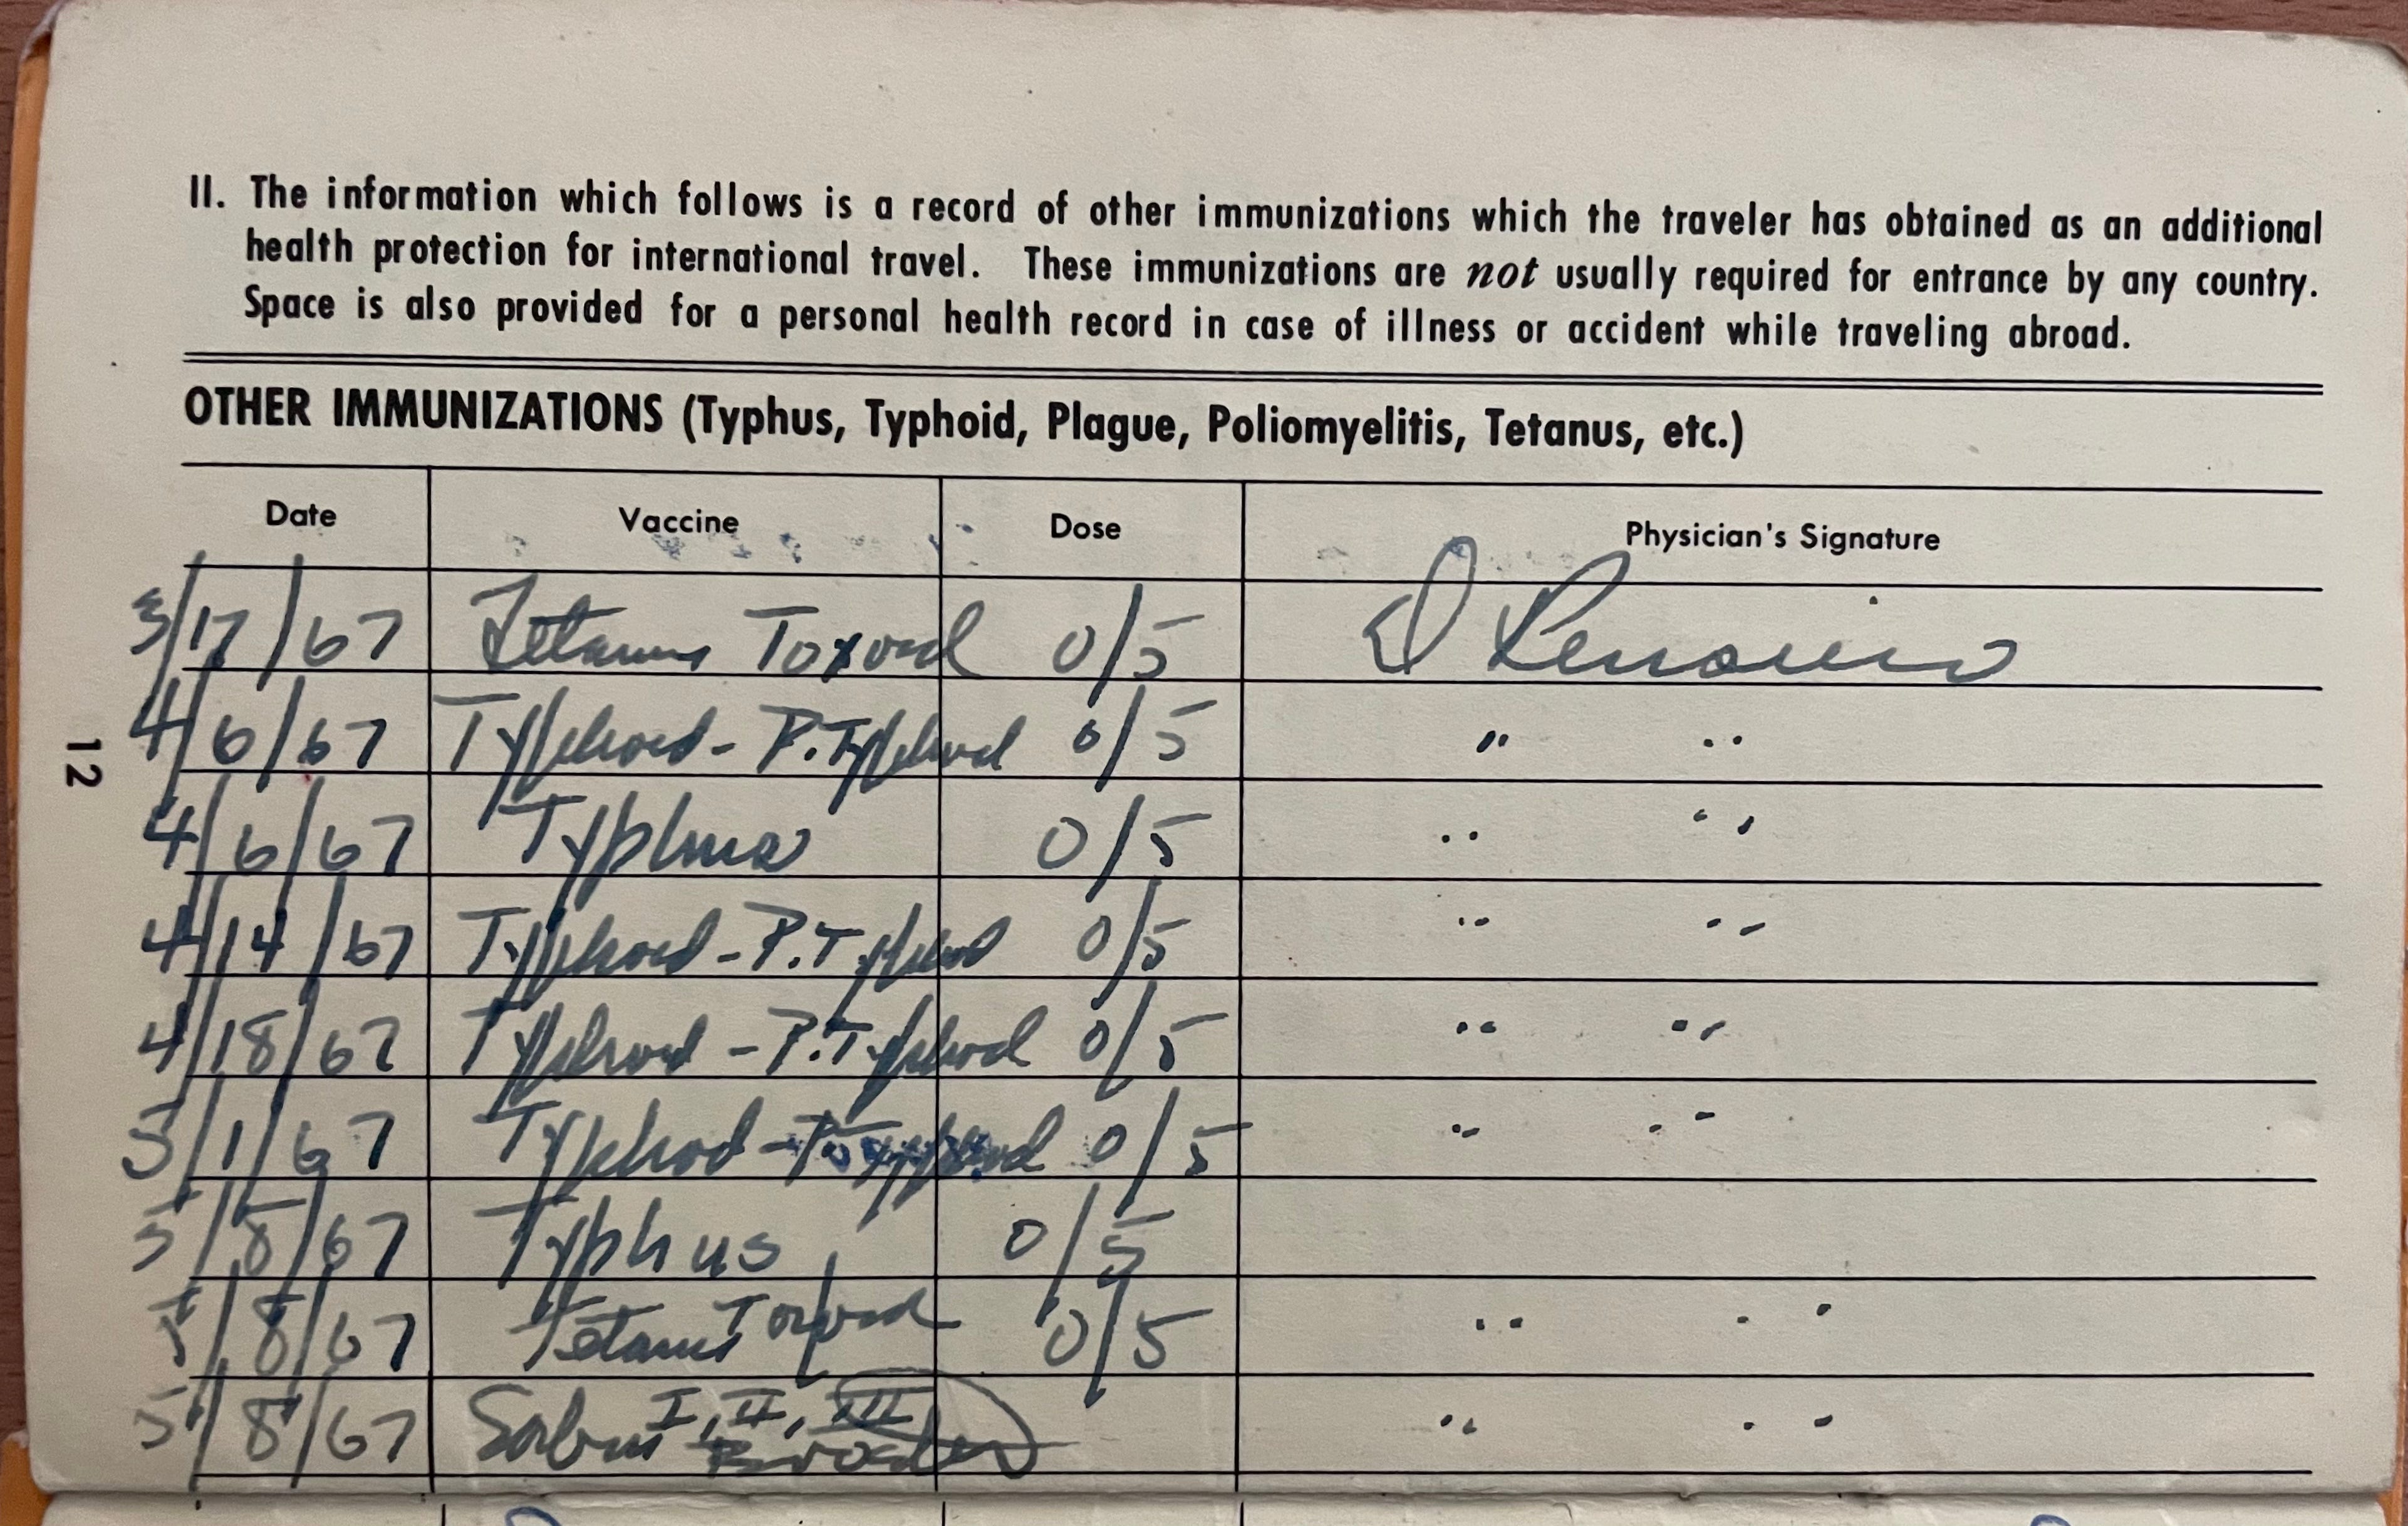 II. The information which follows is a record of other immunizations which the traveler has obtained as an additional
health protection for international travel. These immunizations are not usually required for entrance by any country.
Space is also provided for a personal health record in case of illness or accident while traveling abroad.
OTHER IMMUNIZATIONS (Typhus, Typhoid, Plague, Poliomyelitis, Tetanus, etc.)
Date Vaccine Dose Physician's Signature
3/17/67 Tetanus Toxoid 0/5 D
4/6/67 Typhoid - P.Typhoid 0/5 " "
4/6/67 Typhus 0/5 " "
4/14/67 Typhoid - P.Typhoid 0/5 " "
4/18/67 Typhoid - P.Typhoid 0/5 " "
5/1/67 Typhoid - P.Typhoid 0/5 " "
5/8/67 Typhus 0/5
5/8/67 Tetanus Toxoid 0/5 " "
5/8/67 Sabin I, II, III " "
Booster
12